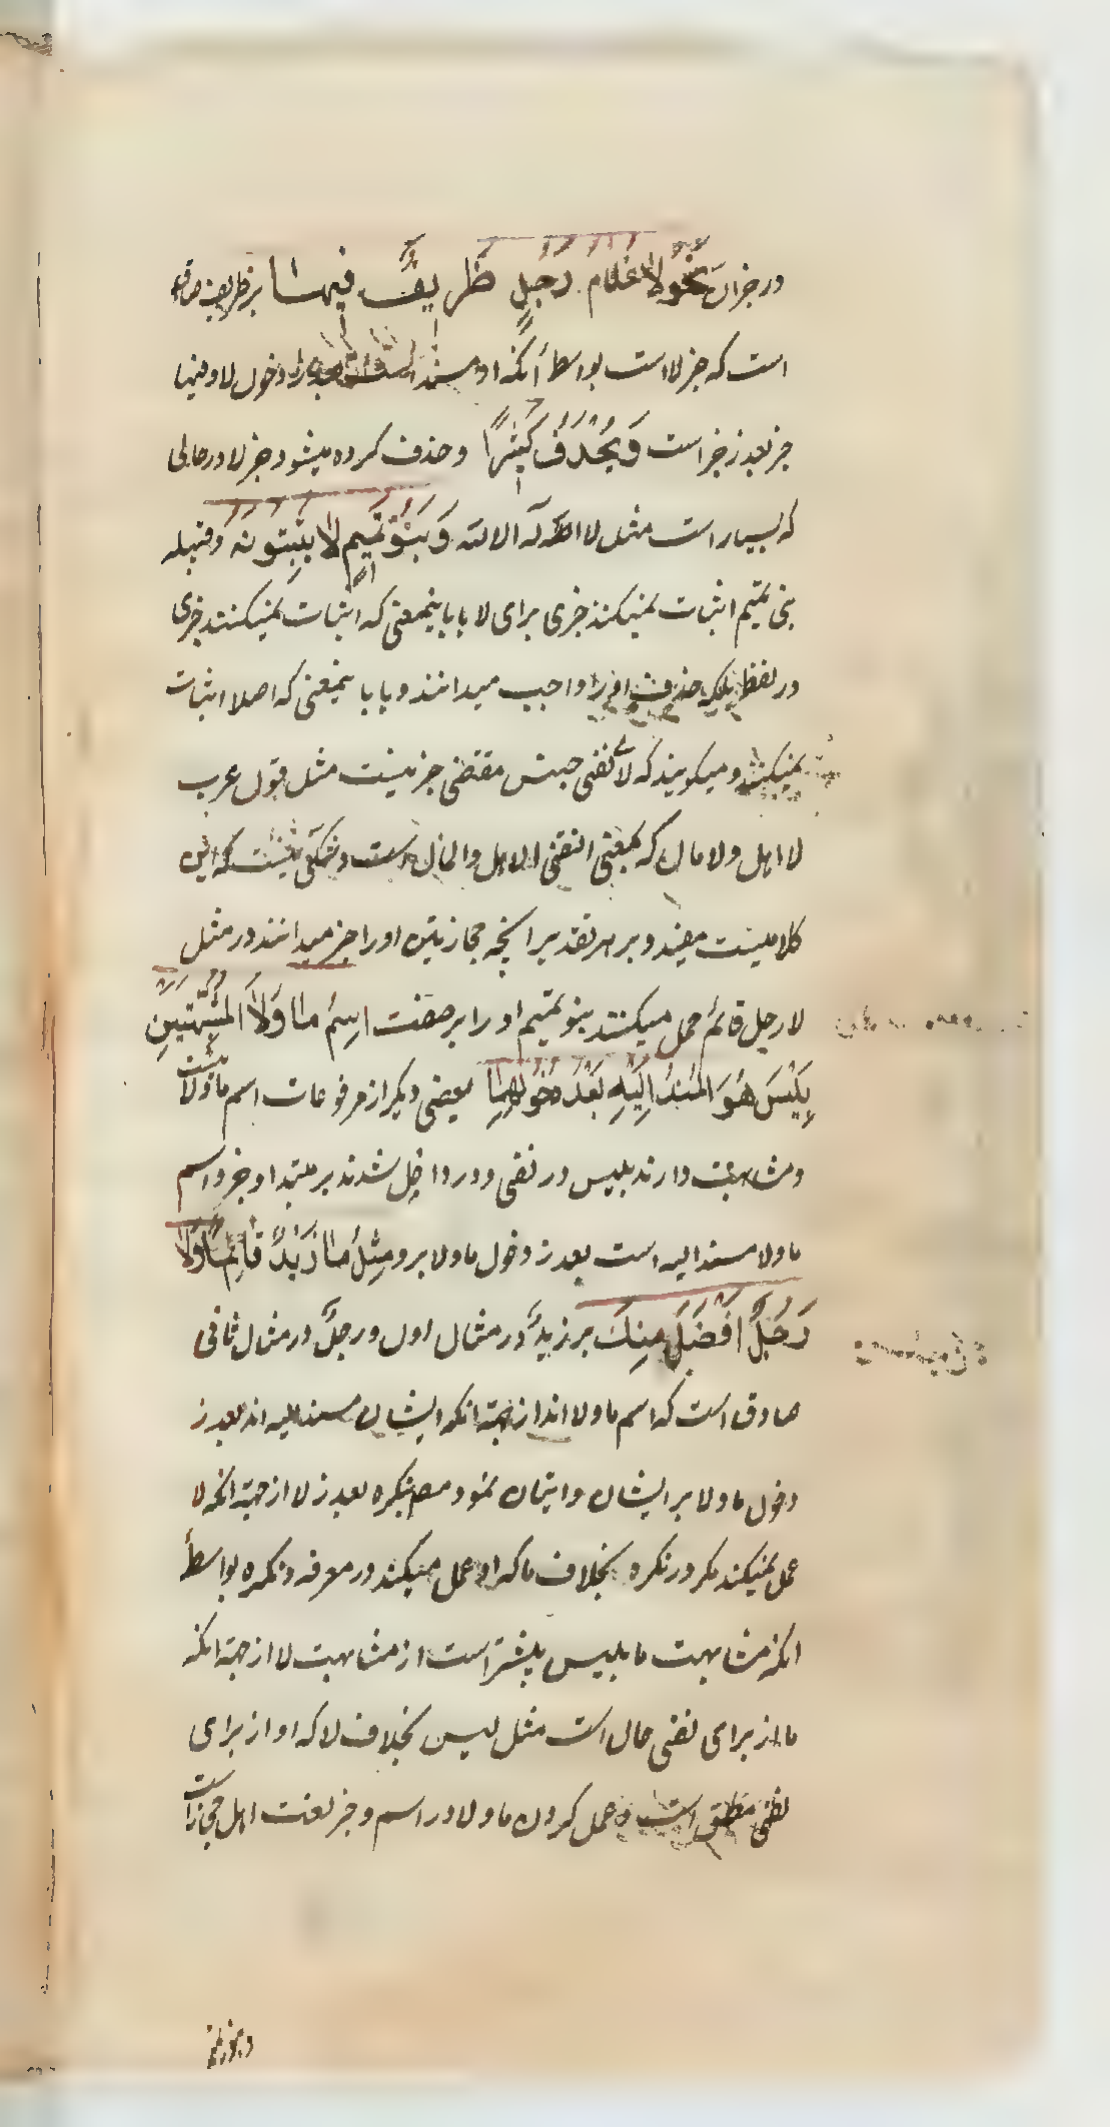 در خبر آن نَحْوُ لا غُلامَ رَجُلٍ ظَرِيفٌ فيها بر ظریف صادق
است که خبر لا است بواسطهٔ آنکه او مسند است بعد از دخول لا و فیها
خبر بعد ز خبر است وَيُحْذَفُ كَثِيرًا و حذف کرده میشود خبر لا در حالی
که بسیار است مثل لا اله الا الله وَبَنُو تَمِيمٍ لا يُثْبِتُونَهُ و قبیله
بنی تمیم اثبات نمیکنند خبری برای لا یا باینمعنی که اثبات نمیکنند خبری
در لفظ بلکه حذف او را واجب میدانند و یا باینمعنی که اصلا اثبات
نمیکنند و میکویند که لاء نفی جنس مقتضی خبر نیست مثل قول عرب
لا اهل و لا مال که بمعنی انتفی الاهل و المال است و شکی نیست که این
کلامیست مفید و بر هر تقدیر آنچه حجازیین او را خبر میدانند در مثل
لا رجل قائم حمل میکنند بنو تمیم او را بر صفت اسمُ ما وَلا المُشَبَّهَتَيْنِ
بِلَيْسَ هُوَ المُسْنَدُ اِلَيْهِ بَعْدَ دُخُولِهِما بعضی دیکر از مرفوعات اسم ما و لا است
و مشابهت دارند بلیس در نفی و در داخل شدند بر مبتدا و خبر و اسم
ما و لا مسند الیه است بعد ز دخول ما و لا بر و مِثْلُ ما زَيْدٌ قائِمًا وَلا
رَجُلٌ اَفْضَلَ مِنْكَ بر زیدٌ در مثال اول و رجلٌ در مثال ثانی
صادق است که اسم ما و لا اند از جهة آنکه ایشان مسند الیه اند بعد ز
دخول ما و لا بر ایشان و اتیان نمود مصنف بنکره بعد ز لا از جهة آنکه لا
عمل نمیکند مکر در نکره بخلاف ما که او عمل میکند در معرفه و نکره بواسطهٔ
آنکه مشابهت ما بلیس بیشتر است از مشابهت لا از جهة آنکه
ما از برای نفی حال است مثل لیس بخلاف لا که او از برای
نفی مطلق است و عمل کردن ما و لا در اسم و خبر لغت اهل حجاز است